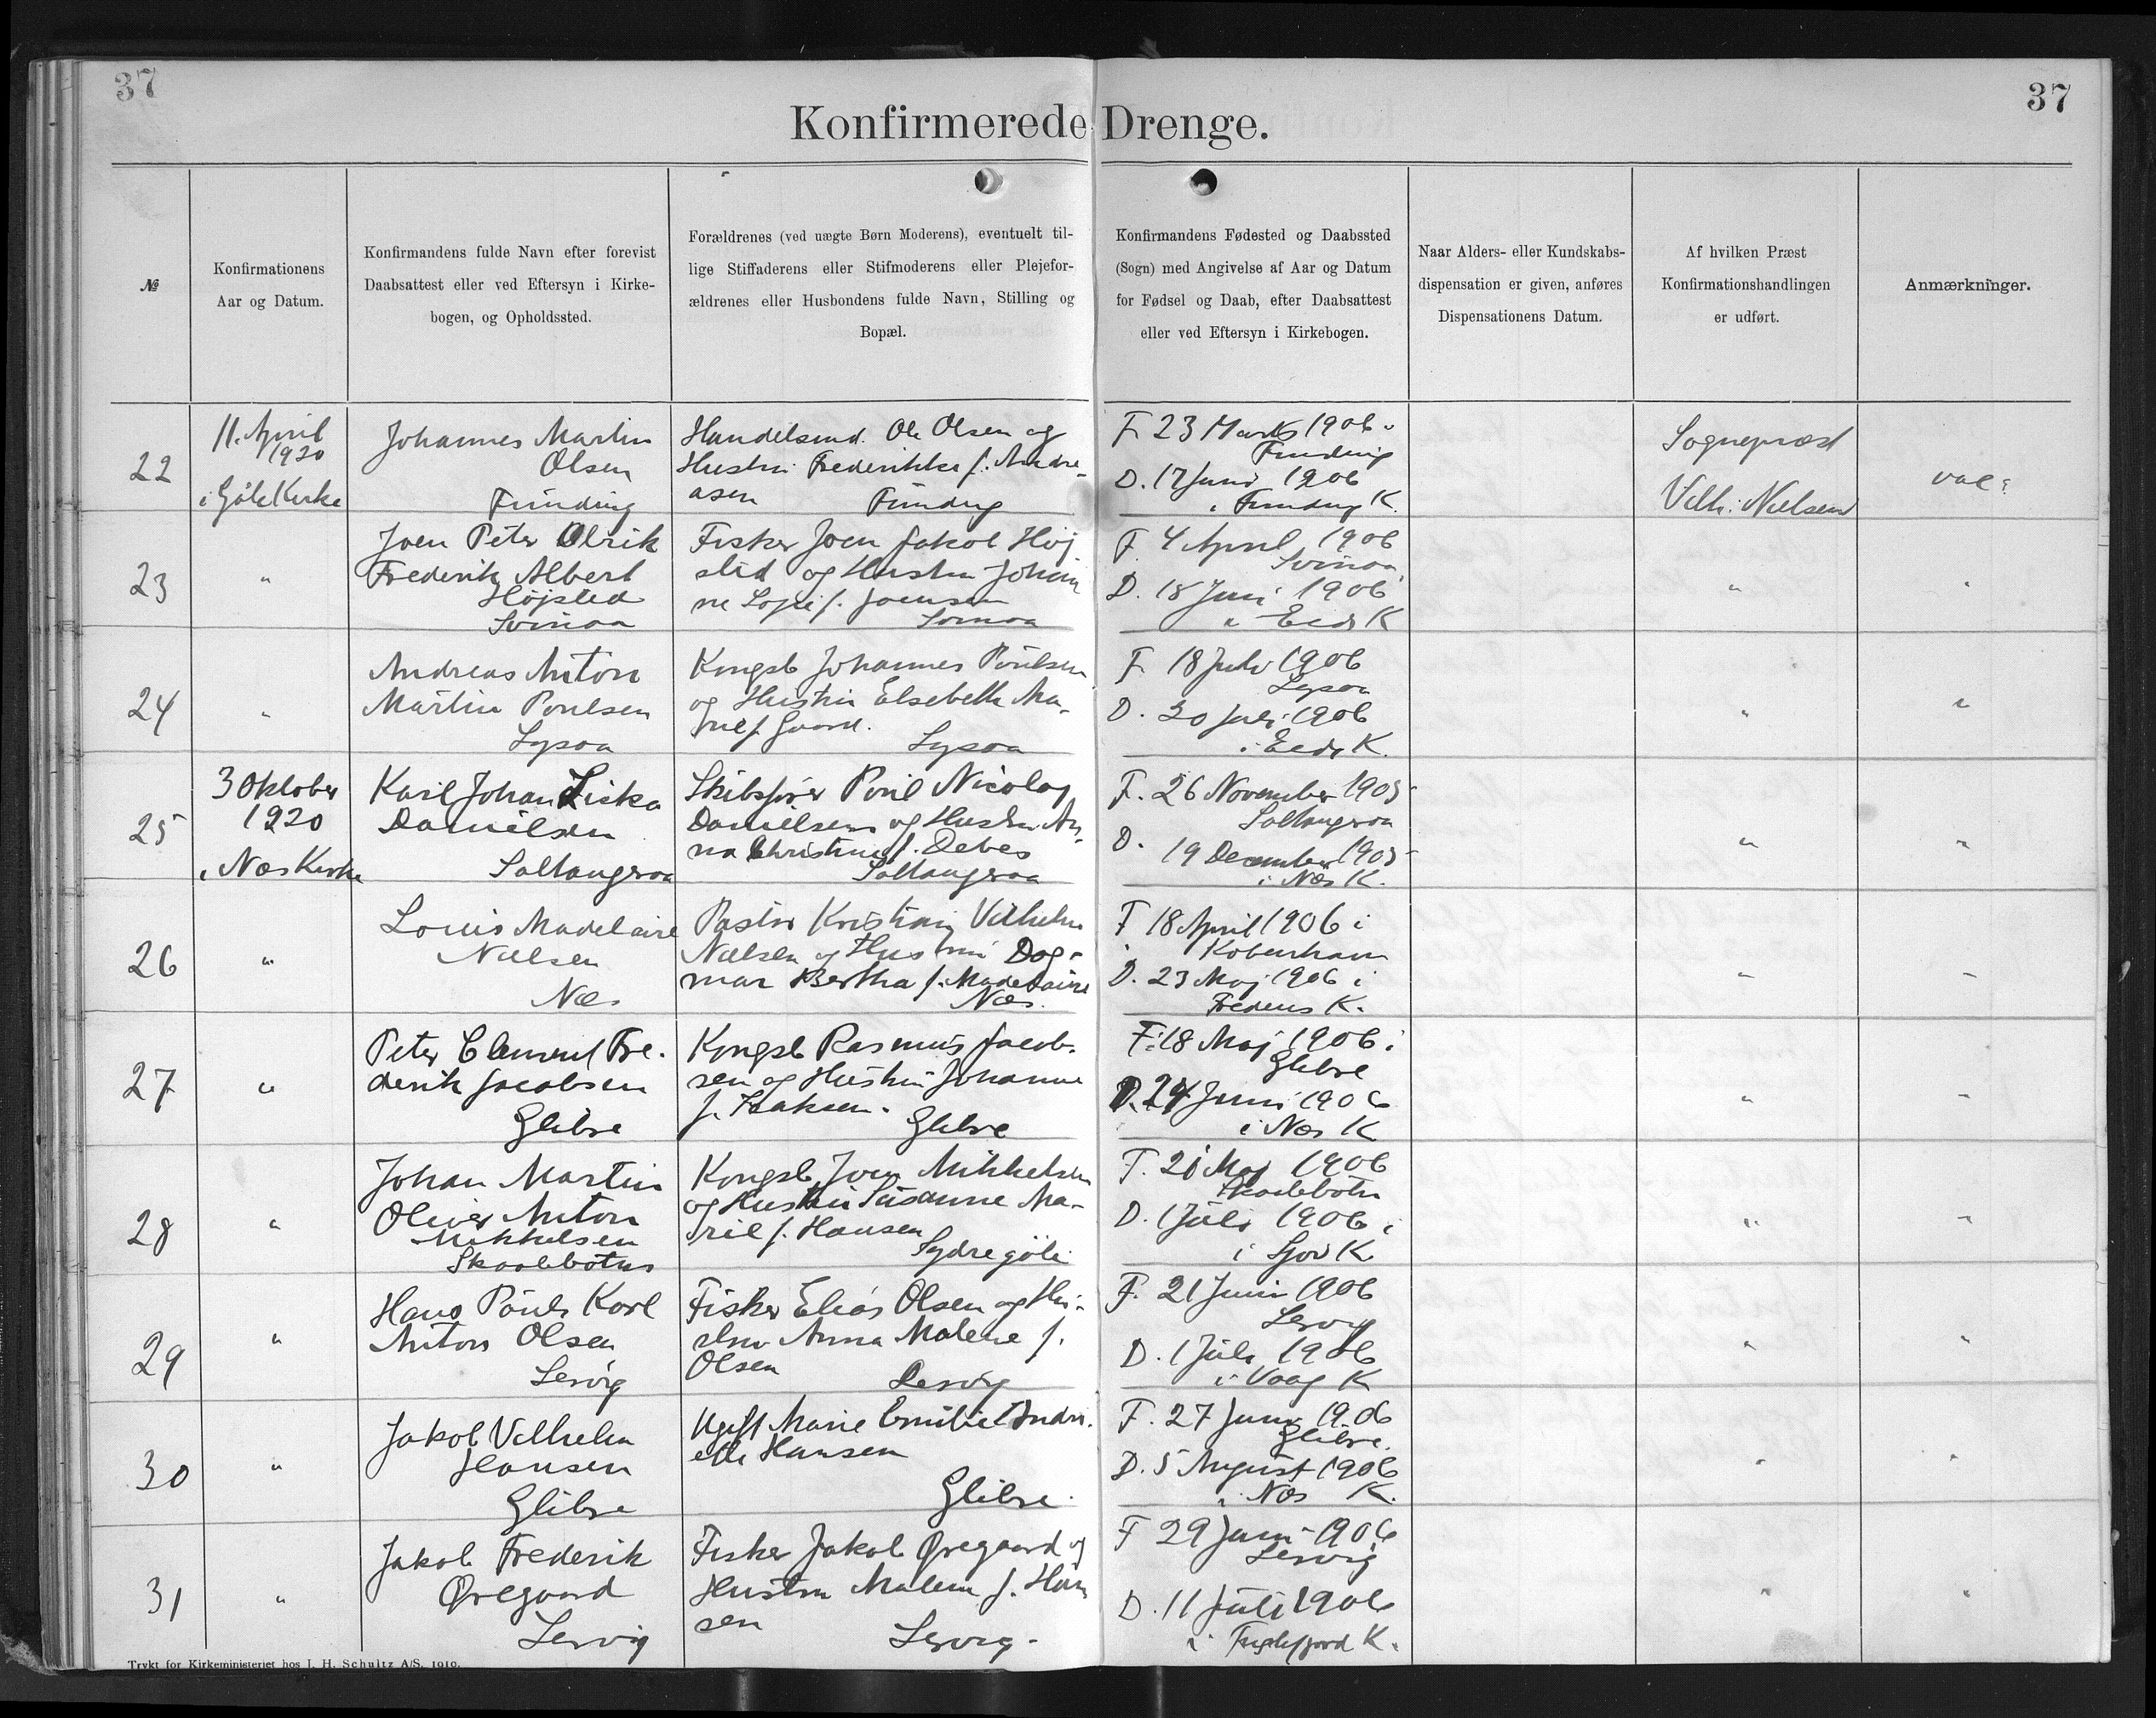 37
37
Konfirmerede Drenge.
№
Konfirmationens
Aar og Datum.
Konfirmandens fulde Navn efter forevist
Daabsattest eller ved Eftersyn i Kirke-
bogen, og Opholdssted.
Forældrenes (ved uægte Børn Moderens), eventuelt til-
lige Stiffaderens eller Stifmoderens eller Plejefor-
ældrenes eller Husbondens fulde Navn, Stilling og
Bopæl.
Konfirmandens Fødested og Daabssted
(Sogn) med Angivelse af Aar og Datum
for Fødsel og Daab, efter Daabsattest
eller ved Eftersyn i Kirkebogen.
Naar Alders- eller Kundskabs-
dispensation er given, anføres
Dispensationens Datum.
Af hvilken Præst
Konfirmationshandlingen
er udført.
Anmærkninger.
22
11. April
1920
i Gøte Kirke
Johannes Martin
Olsen
Funding
Handelsmd. Ole Olsen og
Hustru Frederikke f. Andre-
asen Funding
F. 23 Marts 1906
Funding
D. 17 Juni 1906
i Funding K.
Sognepræst
Vilh. Nielsen
vac:
23
"
Joen Peter Olrik
Frederik Albert
Højsted
Svinoa
Fisker Joen Jakob Høj
sted og Hustru Johan
ne Sofie f. Joensen
Svinoa
F. 4 April 1906
Svinoa
D. 18 Juni 1906
i Eeds K
"
"
24
"
Andreas Anton
Martin Poulsen
Lysoa
Kongsb Johannes Poulsen
og Hustru Elsebeth Ma-
Gaard.
Lysoa
F. 18 Juli 1906
Lysoa
D. 20 Juli 1906
i Eeds K.
"
"
25
3 Oktober
1920
i Næs Kirke
Karl Johan Liska
Danielsen
Saltangeroa
Skibsfører Poul Nicolay
Danielsen og Hustru An-
na Christine f. Debes
Saltangeroa
F. 26 November 1905
Saltangeroa
D. 19 December 1905
i Næs K.
"
"
26
"
Louis Madelaire
Nielsen
Næs
Pastor Kristian Vilhelm
Nielsen og Hustru Dag-
mar Bertha f. Madelaire
Næs.
F 18 April 1906 i
Kobenhavn
D. 23 Maj 1906 i
Fredens K.
"
"
27
"
Peter Clement Fre-
derik Jacobsen
Glibre
Kongsb Rasmus Jacob-
sen og Hustru Johanne
f. Isaksen.
Glibre
F. 18 Maj 1906 i
Glibre
D. 24 Juni 1906
i Næs K
"
"
28
"
Johan Martin
Oliver Anton
Mikkelsen
Skaalebotns
Kongsb Joen Mikkelsen
og Hustru Susanne Ma-
rie f. Hansen
Sydregøte
F. 21 Maj 1906
Skaalebotn
D. 1 Juli 1906 i
i Sjov K
"
"
29
"
Hans Pouli Karl
Anton Olsen
Lervig
Fisker Elias Olsen og Hu-
stru Anna Malene f.
Olsen Lervig
F. 21 Juni 1906
Lervig
D. 1 Juli 1906
i Vaag K
"
"
30
"
Jakob Vilhelm
Hansen
Glibre
Ugift Marie Emilie Andri-
ette Hansen
Glibre.
F. 27 Juni 1906
Glibre.
D. 5 August 1906
i Næs K.
"
"
31
"
Jakob Frederik
Øregaard
Lervig
Fisker Jakob Øregaard og
Hustru Malene f. Han
sen Lervig.
F 29 Juni 1906
Lervig
D. 11 Juli 1906
i Fuglefjord K.
"
"
Trykt for Kirkeministeriet hos J. H. Schultz A/S. 1919.